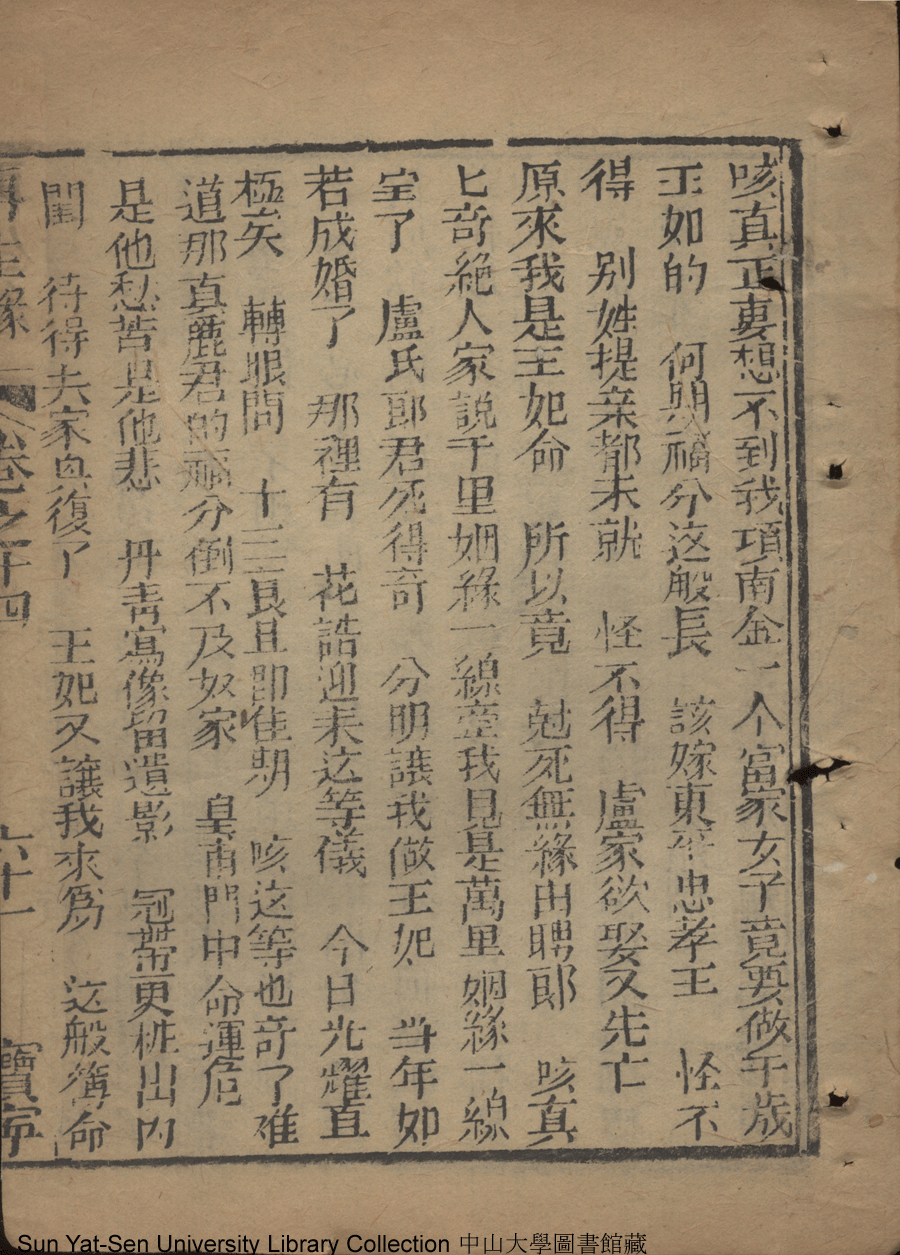 咳真正妻想不到我項南金一个富家女子竟要做千歲
王如的 何期福分这般長 該嫁東平忠孝王 怪不
得 別姓提亲都未就 怪不得 盧家欲娶又先亡
原來我是王妃命 所以竟 尅死無緣由聘郎 咳真
七奇絶人家說千里姻緣一線牽我見是萬里姻緣一線
牽了 盧氏郎君死得奇 分明讓我做王妃 当年如
若成婚了 那裡有 花誥迎来这等儀 今日光耀直
極矣 轉眼間 十三良旦即佳期 咳这等也奇了难
道那真麗君的福分倒不及奴家 皇甫門中命運危
是他愁苦是他悲 丹青寫像留遺影 冠帶更粧出内
閨 待得夫家 復了 王妃又讓我来為 这般薄命
再生緣 卷之十四 六十一 寶寧
Sun Yat-Sen University Library Collection 中山大學圖書館藏